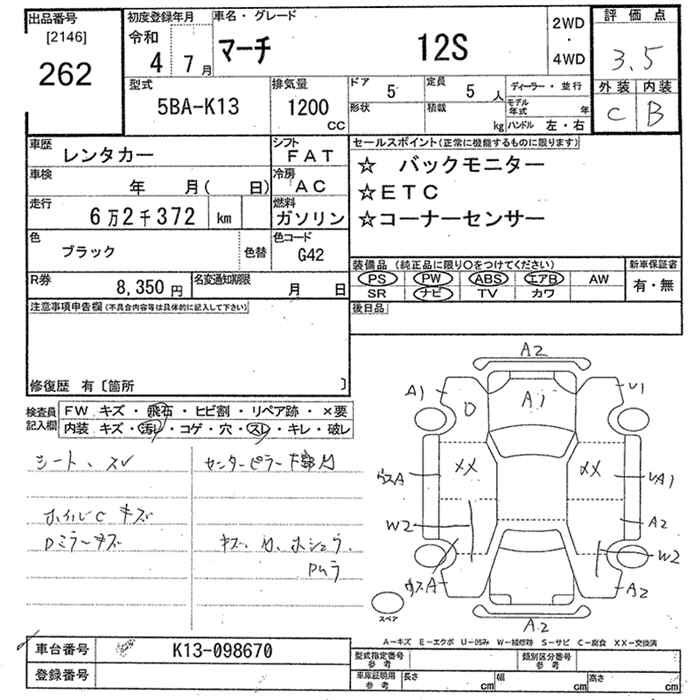 出品番号
[2146]
262
初度登録年月
令和
4 7月
車名・グレード
マーチ 12S
2WD
・
4WD
評価点
3.5
外装 内装
C B
型式
5BA-K13
排気量
1200
CC
ドア
5
定員
5人
ディーラー・並行
形状
積載
kg
モデル年式
年
ハンドル 左・右
車歴
レンタカー
シフト
FAT
車検
年 月( 日)
冷房
AC
走行
6万2千372 km
燃料
ガソリン
色
ブラック
色替
色コード
G42
R券
8,350円
名変通知期限
月 日
セールスポイント(正常に機能するものに限ります)
☆ バックモニター
☆ETC
☆コーナーセンサー
装備品(純正品に限り○をつけてください)
PS PW ABS エアB AW
SR ナビ TV カワ
新車保証書
有・無
後日品
注意事項申告欄(不具合内容等は具体的に記入して下さい)
修復歴 有〔箇所 〕
検査員
記入欄
FW キズ・飛石・ヒビ割・リペア跡・×要
内装 キズ・汚レ・コゲ・穴・スレ・キレ・破レ
シート、スレ
ホイルC キズ
Dミラーキズ
センターピラー
キズ
A2
A1
A1
U1
XX
XX
A
UA1
W2
A2
W2
A
A2
A2
スペア
A−キズ E−エクボ U−凹み W−補修跡 S−サビ C−腐食 XX−交換済
車台番号
K13-098670
登録番号
型式指定番号
参考
類別区分番号
参考
車庫証明用
参考
長さ cm
幅 cm
高さ cm